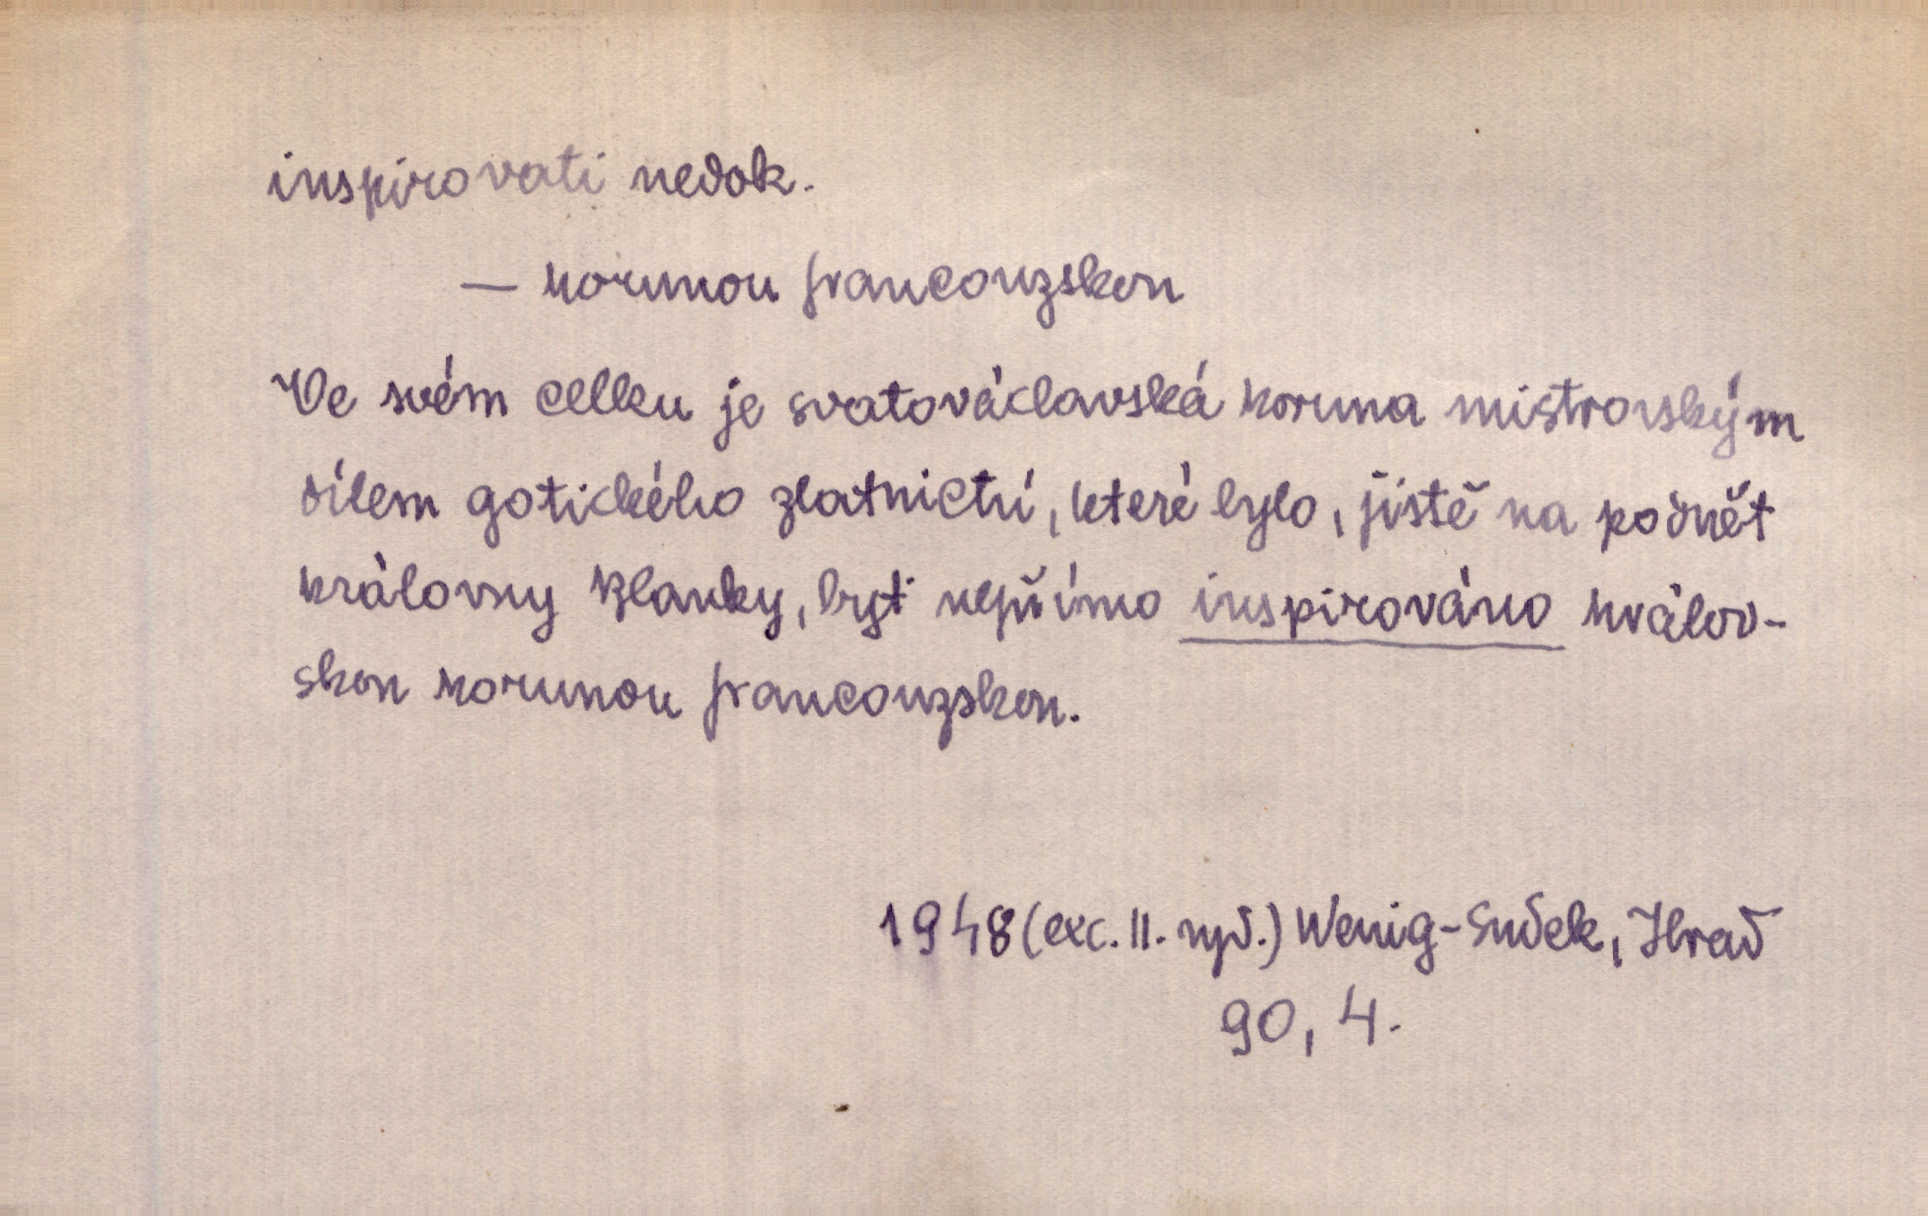 inspirovati nedok.
— korunou francouzskou
Ve svém celku je svatováclavská koruna mistrovským
dílem gotického zlatnictví, které bylo, jistě na podnět
královny Blanky, byť nepřímo inspirováno králov-
skou korunou francouzskou.
1948 (exc. II. vyd.) Wenig-Sudek, Hrad
90, 4.